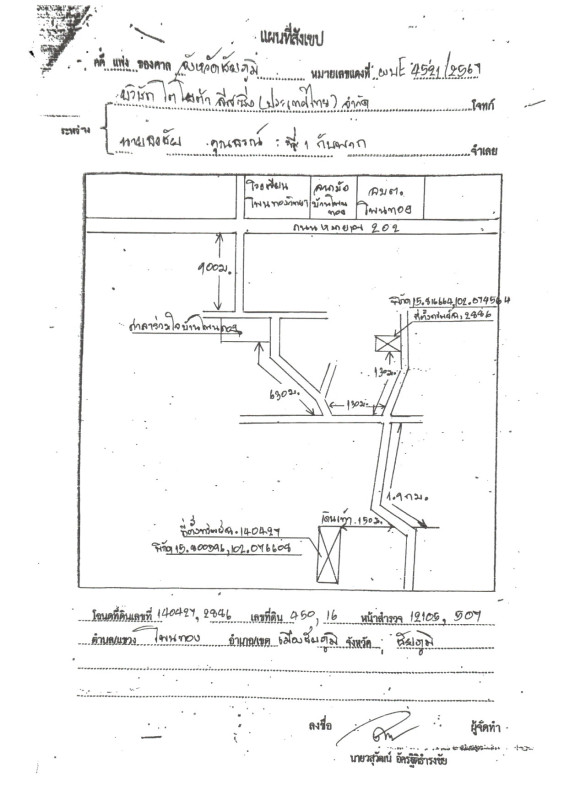 แผนที่สังเขป
คดี แพ่ง ของศาล จังหวัดชัยภูมิ หมายเลขแดงที่ ผบE 4521/2567
บริษัท โตโยต้า ลีสซิ่ง (ประเทศไทย) จำกัด โจทก์
ระหว่าง
ที่ 1 กับพวก จำเลย
โรงเรียน
บ้านโพน
ทอง
อบต.
โพนทอง
ถนนหมายเลข 202
900ม.
ศาลากลางบ้านโพนทอง
630ม.
130ม.
130ม.
102.074564
ที่ตั้งทรัพย์ฉ. 2846
1.9 กม.
เดินเท้า 150ม.
ที่ตั้งทรัพย์ฉ. 140427
พิกัด 15.800396, 102.076608
โฉนดที่ดินเลขที่ 140427, 2846 เลขที่ดิน 450, 16 หน้าสำรวจ 12105, 507
ตำบล/แขวง โพนทอง อำเภอ/เขต เมืองชัยภูมิ จังหวัด ชัยภูมิ
ลงชื่อ ผู้จัดทำ
นายวสุวัฒน์ อัครฐิติธำรงชัย